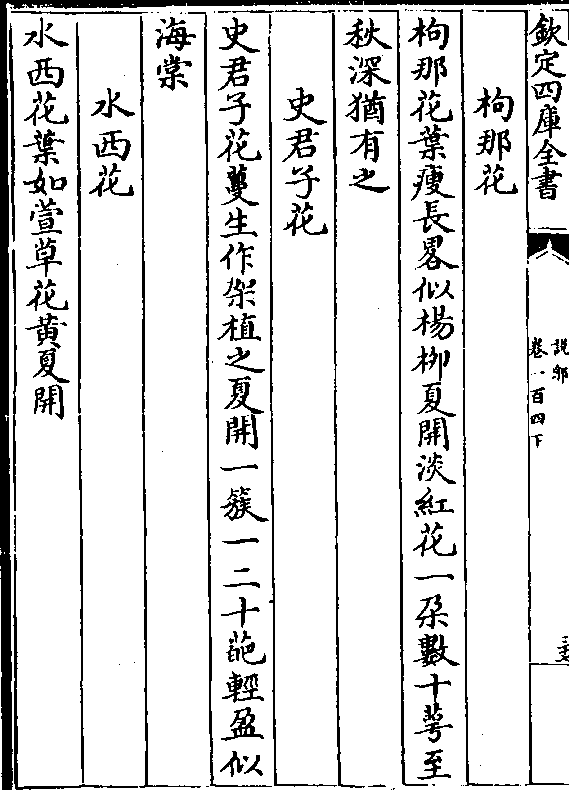 欽定四庫全書
説郛
卷一百四下
枸那花
枸那花葉瘦長畧似楊柳夏開淡紅花一朶數十萼至
秋深猶有之
史君子花
史君子花蔓生作架植之夏開一簇一二十葩輕盈似
海棠
水西花
水西花葉如萱草花黄夏開